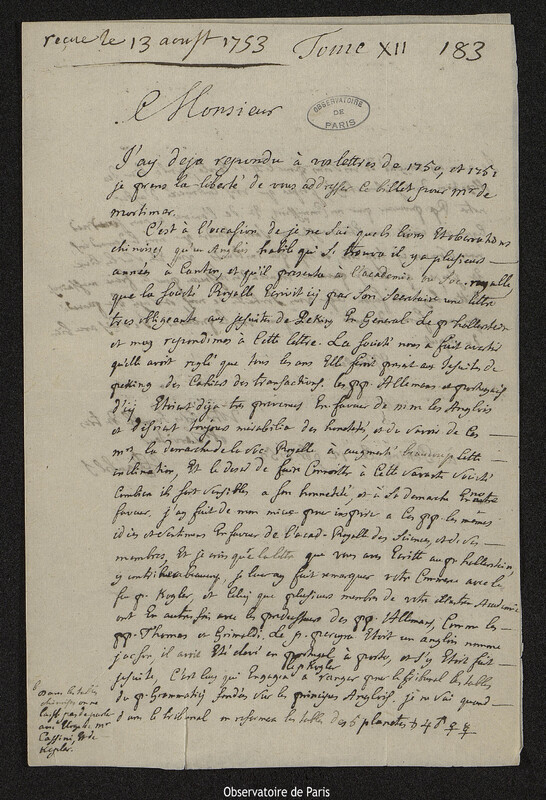 reçue le 13 aoust 1753 Tome XII 183
Monsieur
OBSERVATOIRE
DE
PARIS
J'ay deja repondu à vos lettres de 1750, et 1751
je prens la liberté de vous addresser ce billet pour mr de
mortimer.
C'est à l'occasion de je ne sai quels livres Et observations
chinoises qu'un Anglois habile qui se trouva il y a plusieurs
années a Canton, et qu'il presenta à l'academie ou Soc. royalle
que la societé Royalle Ecrivit icy par son Secretaire une lettre
tres obligeante aux jesuites de Peking En General. Le p. hallerstein
et moy repondimes à Cette lettre. La societé nous a fait avertir
qu'elle avoit reglé que tous les ans Elle feroit present aux Jesuites de
peking des Cahiers des transactions. les pp. Allemans et portugais
d'icy Etoient deja tres prevenus En faveur de mm les Anglois
et disoient toujours mirabilia des honnetetés, et du savoir de Ces
mrs la demarche de la Soc. Royalle à augmenté beaucoup Cette
inclination, Et le desir de faire Connoitre à Cette savante societé
Combien ils sont sensibles a son honneteté, et à sa demarche En notre
faveur. j'ay fait de mon mieux pour inspirer a Ces pp. les mêmes
idées et sentimens En faveur de l'acad. Royalle des sciences, et de ses
membres, Et je crois que la lettre que vous avez Ecritte au p. hallerstein,
y contribuera beaucoup. je leur ay fait remarquer votre Commerce avec le
feu p. Kogler, et Celuy que plusieurs membres de votre illustre Academie
ont En autrefois avec les predecesseurs des pp. Allemans, Comme les
pp. Thomas et Grimaldi. Le p. pereyra Etoit un anglois nommé
jackson il avoit Eté elevé en portugal à porto, et s'y Etoit fait
jesuite, C'est luy qui Engagea le p. Kogler a ranger pour le tribunal les tables
du p. Grammatici fondées sur les principes Anglois. je ne sai quand
dans le tribunal on reformera les tables des 5 planetes ♄ ♃ ♂ ♀ ☿
dans les tables
chinoises on ne
laisse pas de parler
avec Eloge de mr
Cassini, et de
Kepler.
Observatoire de Paris